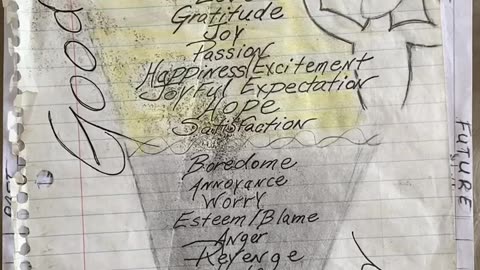 Good
Gratitude
Joy
Passion
Happiness/Excitement
Joyful Expectation
Hope
Satisfaction
Boredome
Annoyance
Worry
Esteem/Blame
Anger
Revenge
FUTURE